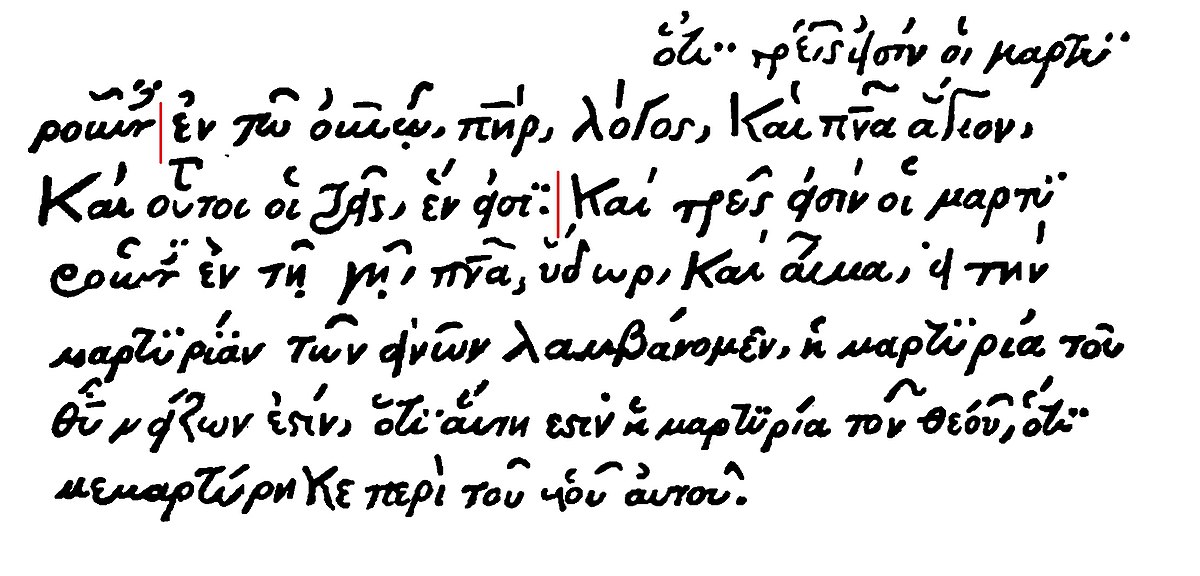 ὅτϊ τρεῖς εἰσὶν οἱ μαρτϋ
ροῦντες ἐν τῶ οὐνῶ, πηρ, λόγος, Καὶ πνα ἅγιον,
Καὶ οὗτοι οἱ τρεῖς, ἕν εἰσϊ: Καὶ τρεῖς εἰσὶν οἱ μαρτϋ
ροῦντες ἐν τῆ γῆ, πνα, ὕδωρ, Καὶ αἷμα, εἰ τὴν
μαρτϋρίαν τῶν ἀνῶν λαμβάνομεν, ἡ μαρτϋρία τοῦ
θῦ μείζων ἐστίν, ὅτϊ αὕτη ἐστὶν ἡ μαρτϋρία τοῦ θεοῦ, ὅτϊ
μεμαρτύρηΚε περὶ τοῦ υἱοῦ ἀυτοῦ.